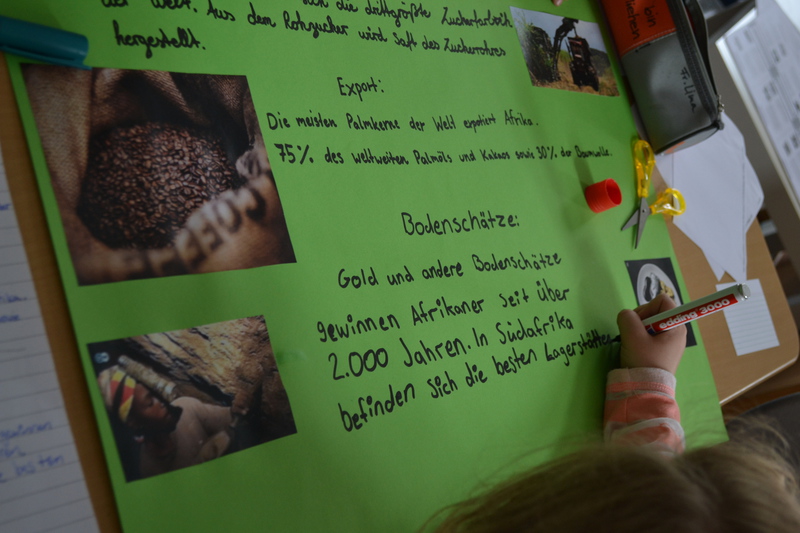 der Welt. Aus dem Rohzucker wird Saft des Zuckerrohres
die drittgrößte
hergestellt.
Export:
Die meisten Palmkerne der Welt expotiert Afrika.
75% des weltweiten Palmöls und Kakaos sowie 30% der Baumwolle.
Bodenschätze:
Gold und andere Bodenschätze
gewinnen Afrikaner seit über
2.000 Jahren. In Südafrika
befinden sich die besten Lagerstätten
COFFEE
edding 3000
bin